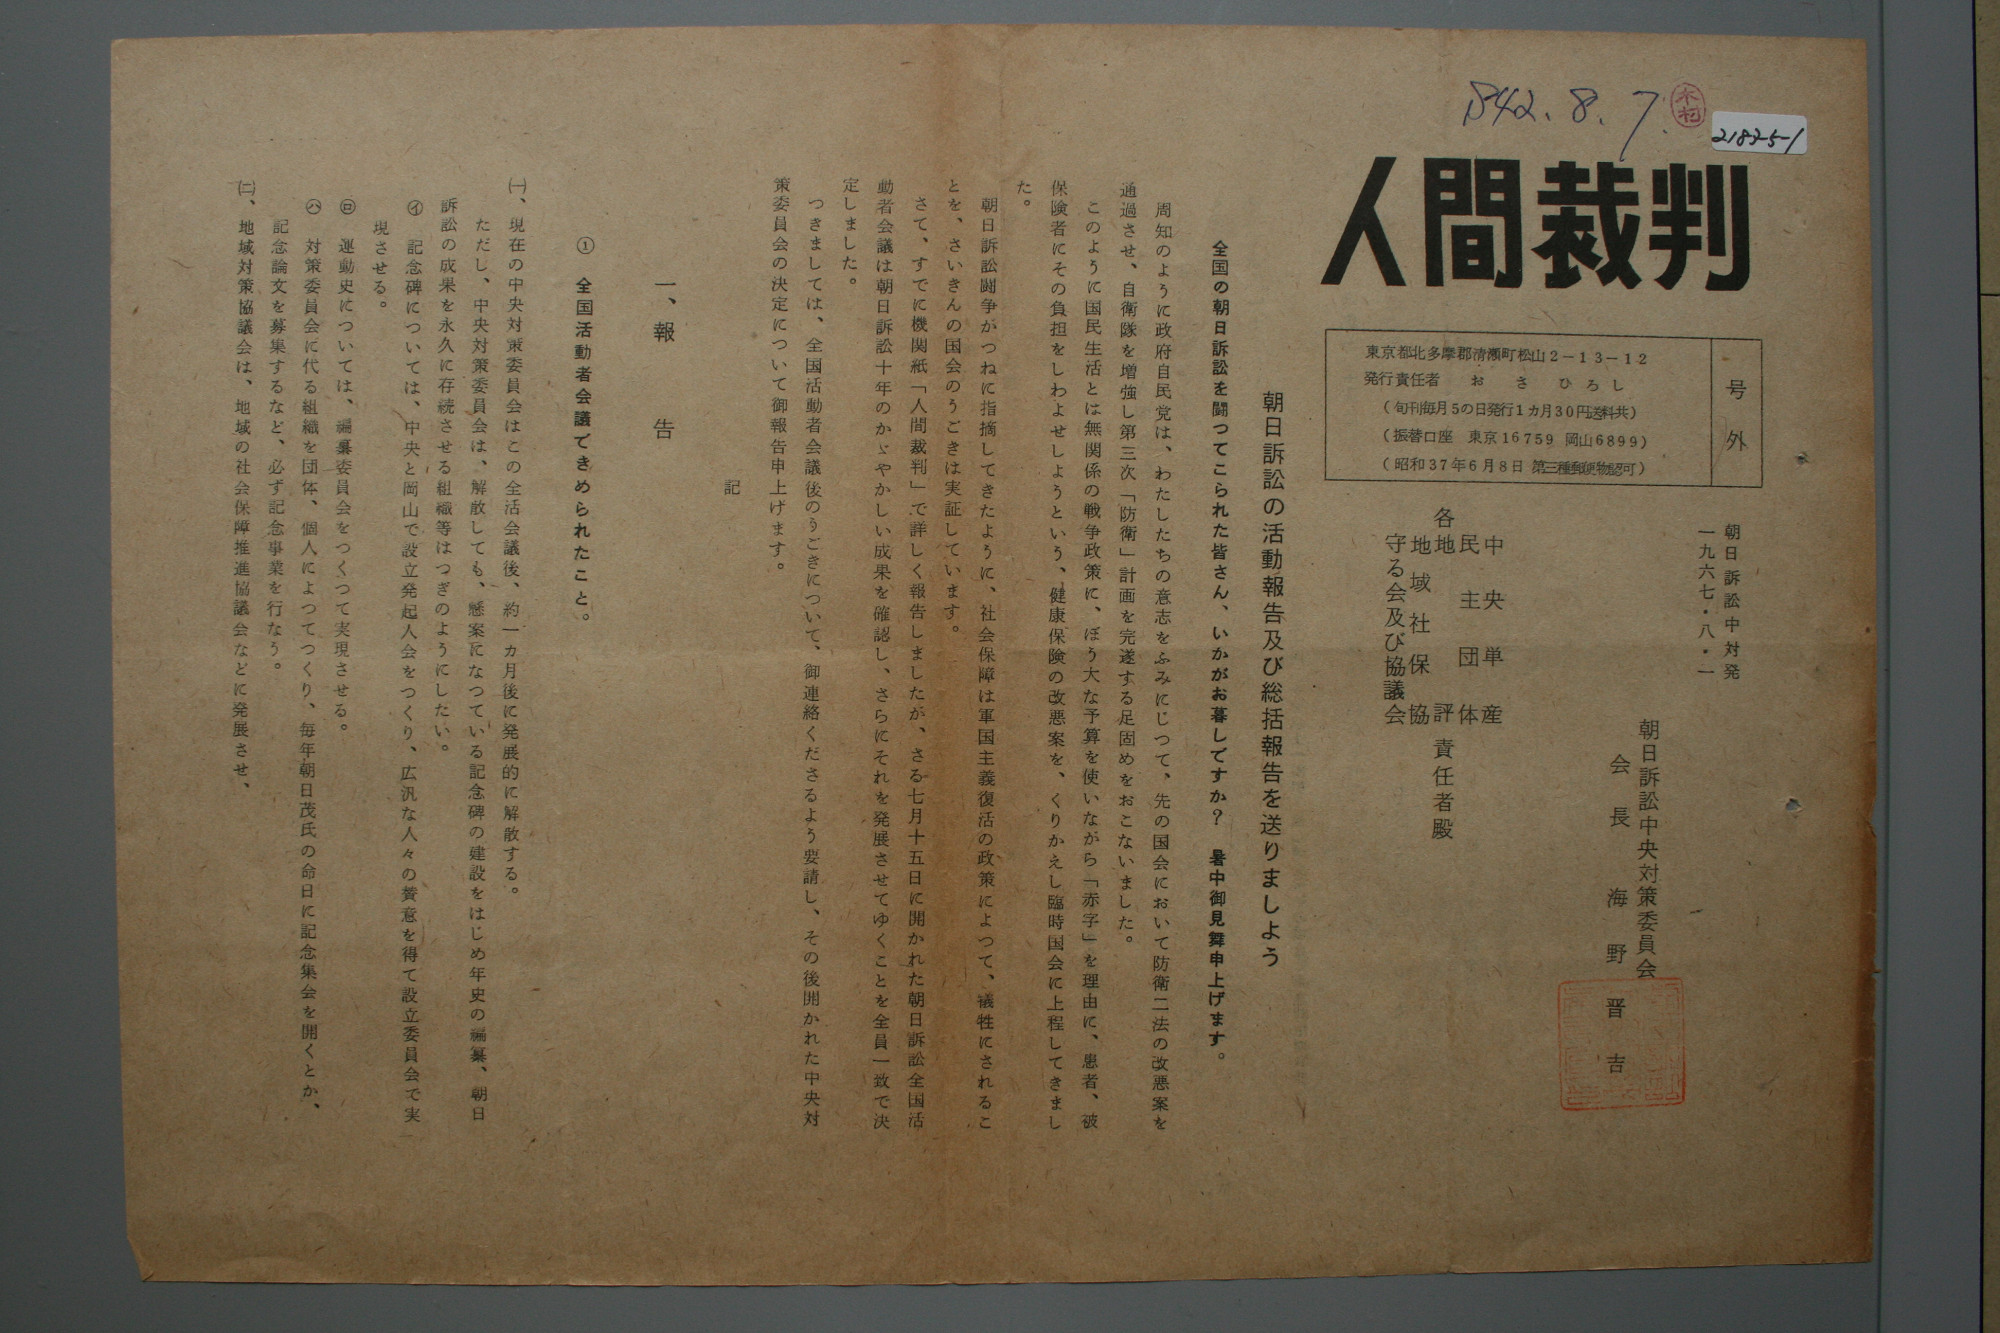 S42.8.7.
木村
2182-5-1
人間裁判
号外
東京都北多摩郡清瀬町松山2-13-12
発行責任者 おさ ひろし
(旬刊毎月5の日発行1カ月30円送料共)
(振替口座 東京16759 岡山6899)
(昭和37年6月8日 第三種郵便物認可)
朝日訴訟中対発
一九六七・八・一
朝日訴訟中央対策委員会
会長 海野晋吉
中央単産
民主団体
各地評 責任者殿
地域社保協
守る会及び協議会
朝日訴訟の活動報告及び総括報告を送りましよう
全国の朝日訴訟を闘つてこられた皆さん、いかがお暮しですか? 暑中御見舞申上げます。
周知のように政府自民党は、わたしたちの意志をふみにじつて、先の国会において防衛二法の改悪案を
通過させ、自衛隊を増強し第三次「防衛」計画を完遂する足固めをおこないました。
このように国民生活とは無関係の戦争政策に、ぼう大な予算を使いながら「赤字」を理由に、患者、被
保険者にその負担をしわよせしようという、健康保険の改悪案を、くりかえし臨時国会に上程してきまし
た。
朝日訴訟闘争がつねに指摘してきたように、社会保障は軍国主義復活の政策によつて、犠牲にされるこ
とを、さいきんの国会のうごきは実証しています。
さて、すでに機関紙「人間裁判」で詳しく報告しましたが、さる七月十五日に開かれた朝日訴訟全国活
動者会議は朝日訴訟十年のかゞやかしい成果を確認し、さらにそれを発展させてゆくことを全員一致で決
定しました。
つきましては、全国活動者会議後のうごきについて、御連絡くださるよう要請し、その後開かれた中央対
策委員会の決定について御報告申上げます。
記
一、報告
① 全国活動者会議できめられたこと。
㈠、現在の中央対策委員会はこの全活会議後、約一カ月後に発展的に解散する。
ただし、中央対策委員会は、解散しても、懸案になつている記念碑の建設をはじめ年史の編纂、朝日
訴訟の成果を永久に存続させる組織等はつぎのようにしたい。
㋑ 記念碑については、中央と岡山で設立発起人会をつくり、広汎な人々の賛意を得て設立委員会で実
現させる。
㋺ 運動史については、編纂委員会をつくつて実現させる。
㋩ 対策委員会に代る組織を団体、個人によつてつくり、毎年朝日茂氏の命日に記念集会を開くとか、
記念論文を募集するなど、必ず記念事業を行なう。
㈡、地域対策協議会は、地域の社会保障推進協議会などに発展させ、